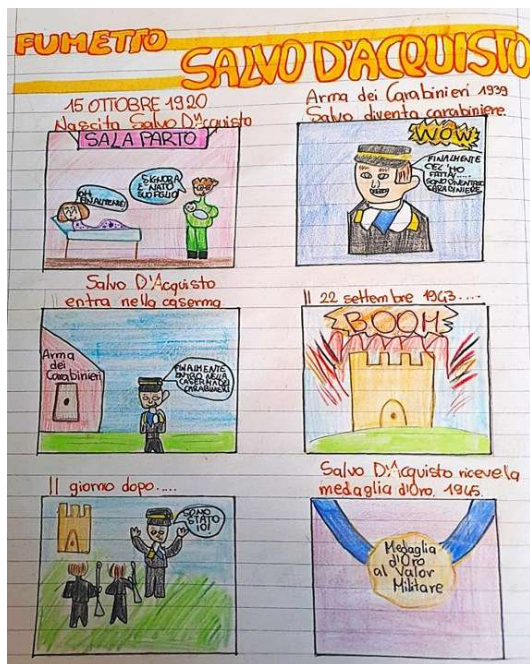 FUMETTO
SALVO D'ACQUISTO
15 OTTOBRE 1920
Nascita Salvo D'Acquisto
SALA PARTO
OH
FINALMENTE!
SIGNORA
È NATO
SUO FIGLIO!
Arma dei Carabinieri 1939
Salvo diventa carabiniere
WOW
FINALMENTE
CEL' HO
FATTA!....
SONO DIVENTATO
CARABINIERE
Salvo D'Acquisto
entra nella caserma
Arma
dei
Carabinieri
FINALMENTE
ENTRO NELLA
CASERMA DEI
CARABINIERI
Il 22 settembre 1943....
BOOM
Il giorno dopo.....
SONO
STATO
IO!
Salvo D'Acquisto riceve la
medaglia d'Oro. 1945.
Medaglia
d'Oro
al Valor
Militare